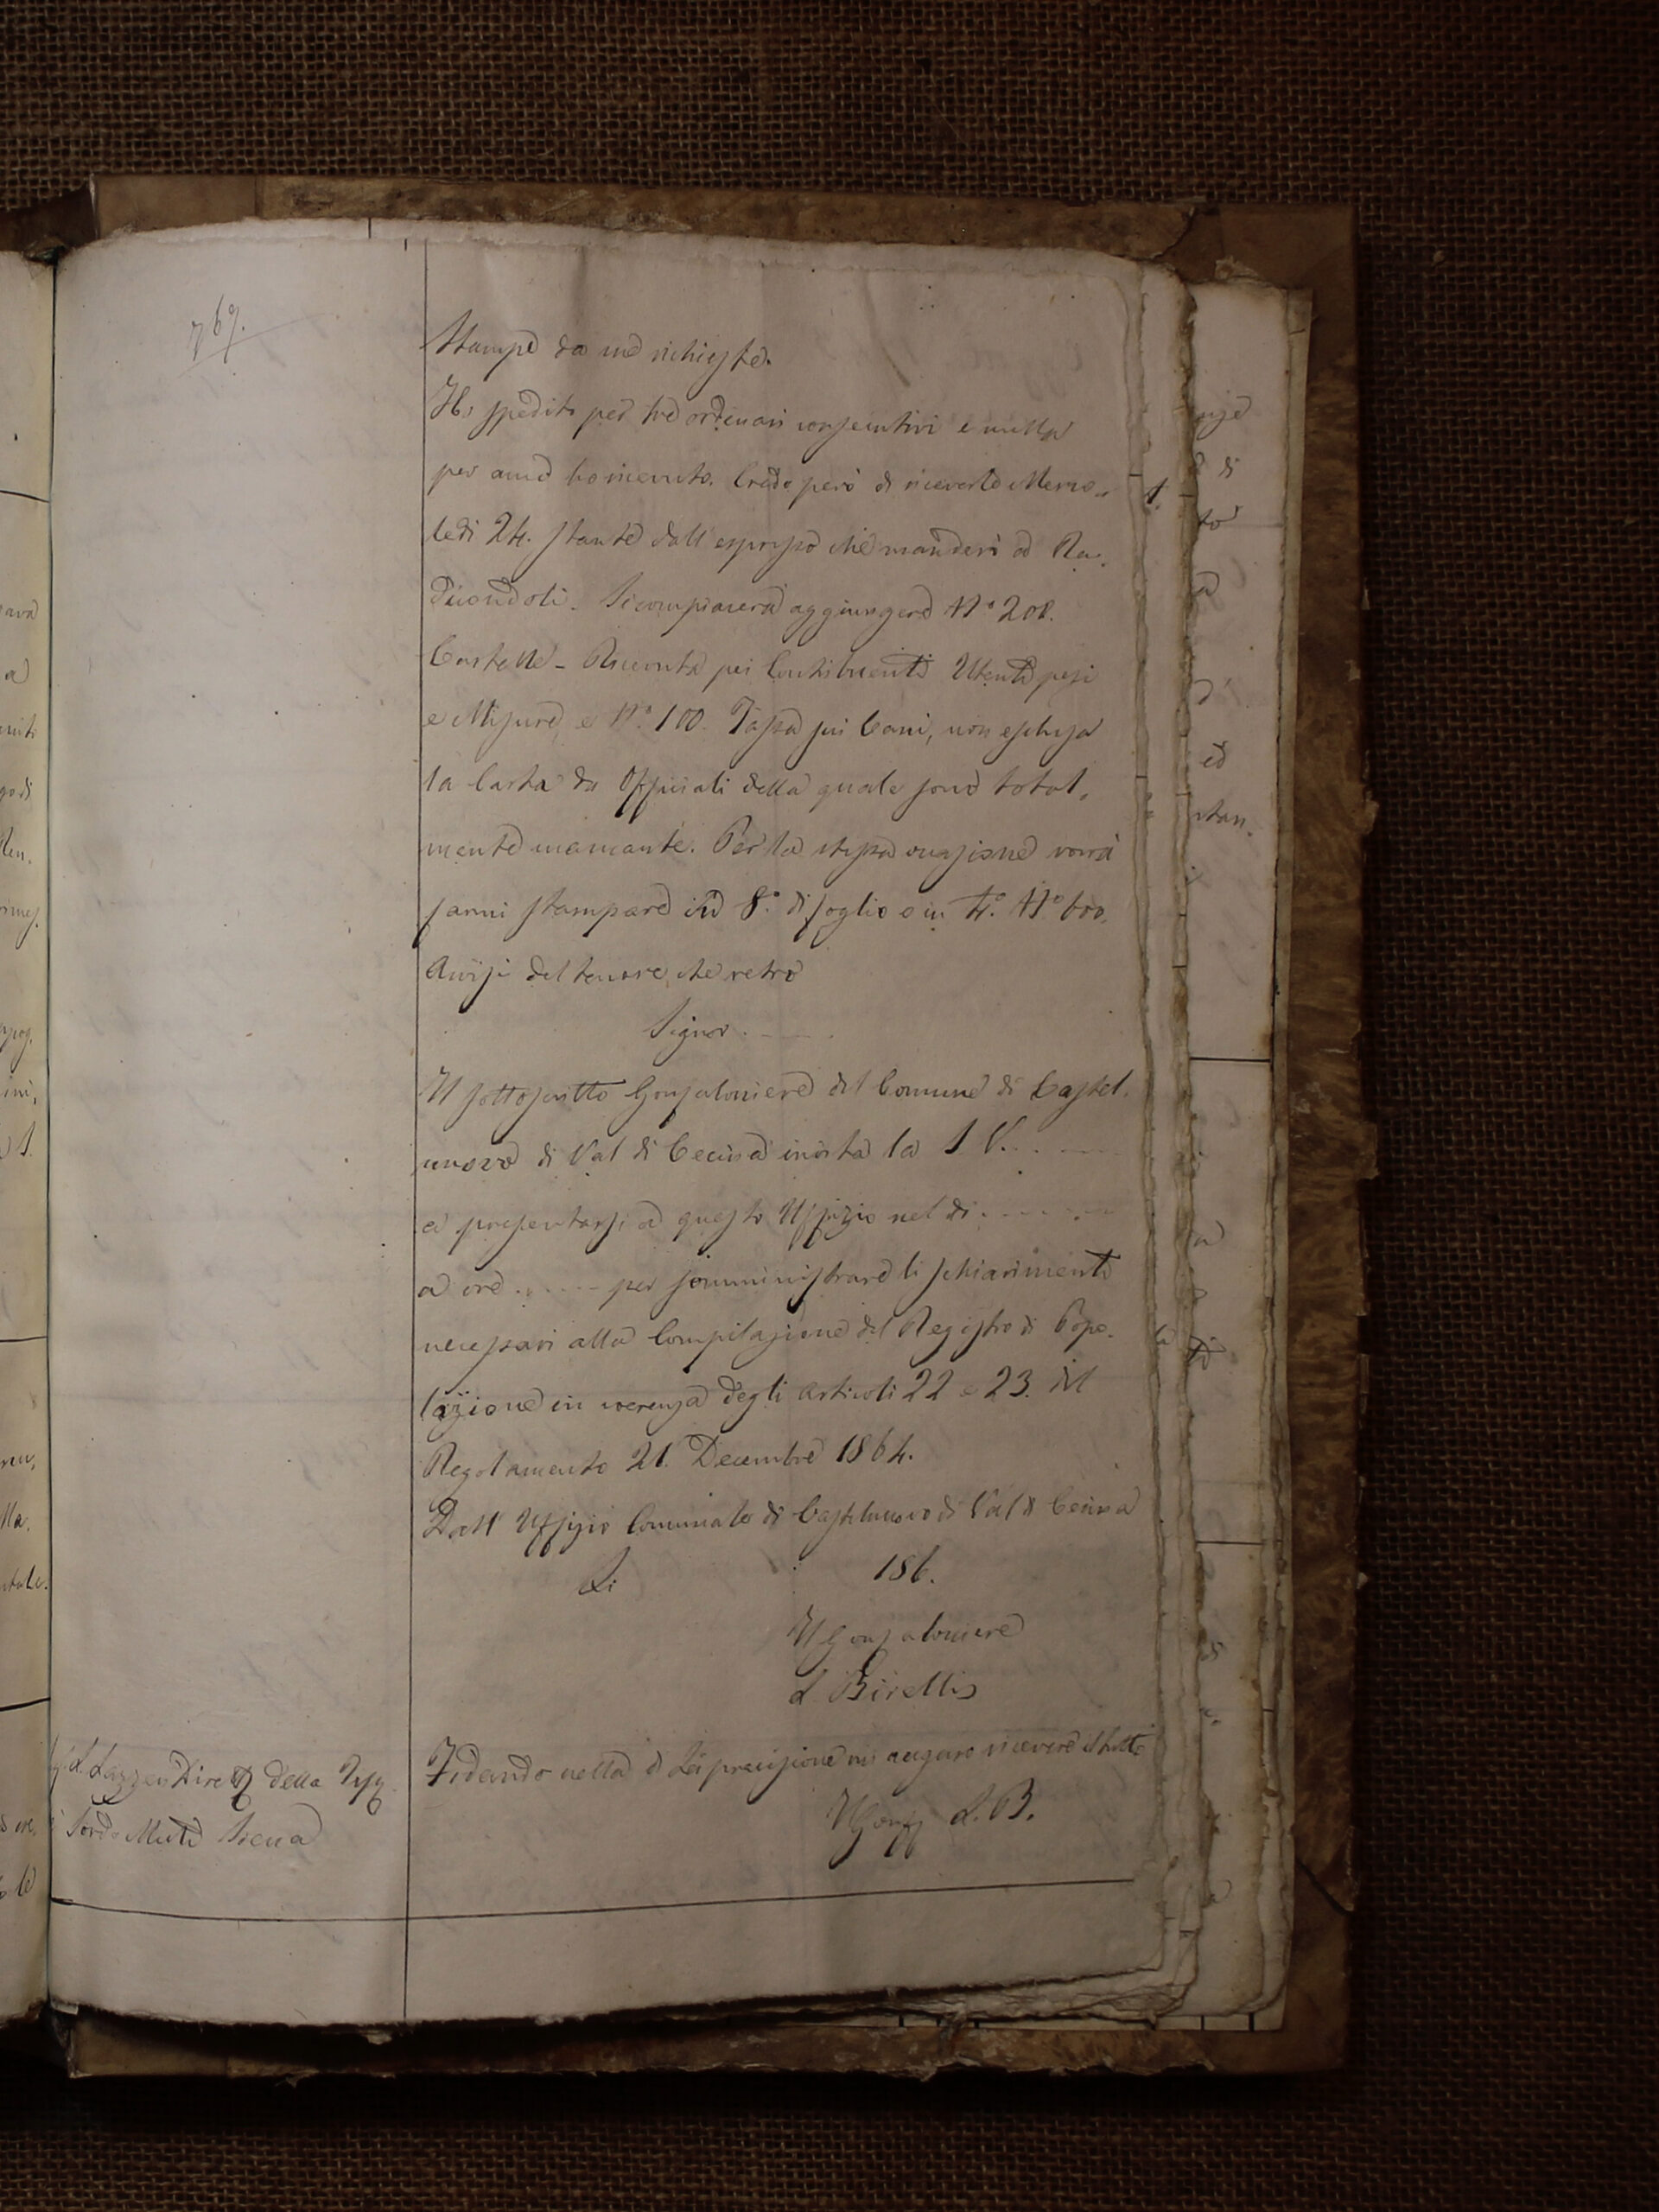 769.
Stampe da me richieste.
Ho spedito per tre ordinari consecutivi e nulla
per anco ho ricevuto. Credo però di riceverle Merco„
ledi 24. stante dall espresso che manderò a Ra„
dicondoli. Si compiacerà aggiungere N° 200.
Cartelle - Ricevute pei Contribuenti Utenti pesi
e Misure, e N° 100. Tassa sui Cani, non esclusa
la Carta da Officiali della quale sono total„
mente mancante. Per la stessa occasione vorrà
farmi stampare in 8° di foglio o in 4° N° 600.
Avvisi del tenore che retro
Signor
Il sottoscritto Gonfaloniere del Comune di Castel„
nuovo di Val di Cecina invita la S V.
a presentarsi a questo Uffizio nel dì
a ore per somministrare li schiarimenti
necessari alla Compilazione del Registro di Popo„
lazione in coerenza degli articoli 22 e 23. del
Regolamento 21. Decembre 1864.
Dall' Uffizio Comunale di Castelnuovo di Val di Cecina
Li 186.
Il Gonfaloniere
L. Birelli
L. Lazzeri Dire della
Sordo Muti Siena
Fidando nella di Lei precisione mi auguro ricevere il tutto
Il Gonf L. B.